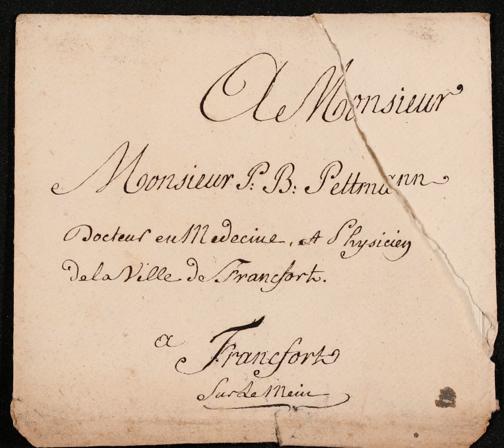 A Monsieur
Monsieur P. B. Pettmann
Docteur en Medecine, et Physicien
de la Ville de Francfort.
a
Francfort
Sur le Mein